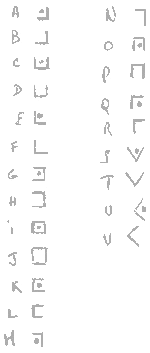 A
B
C
D
E
F
G
H
i
J
K
L
M
N
O
P
Q
R
S
T
U
V